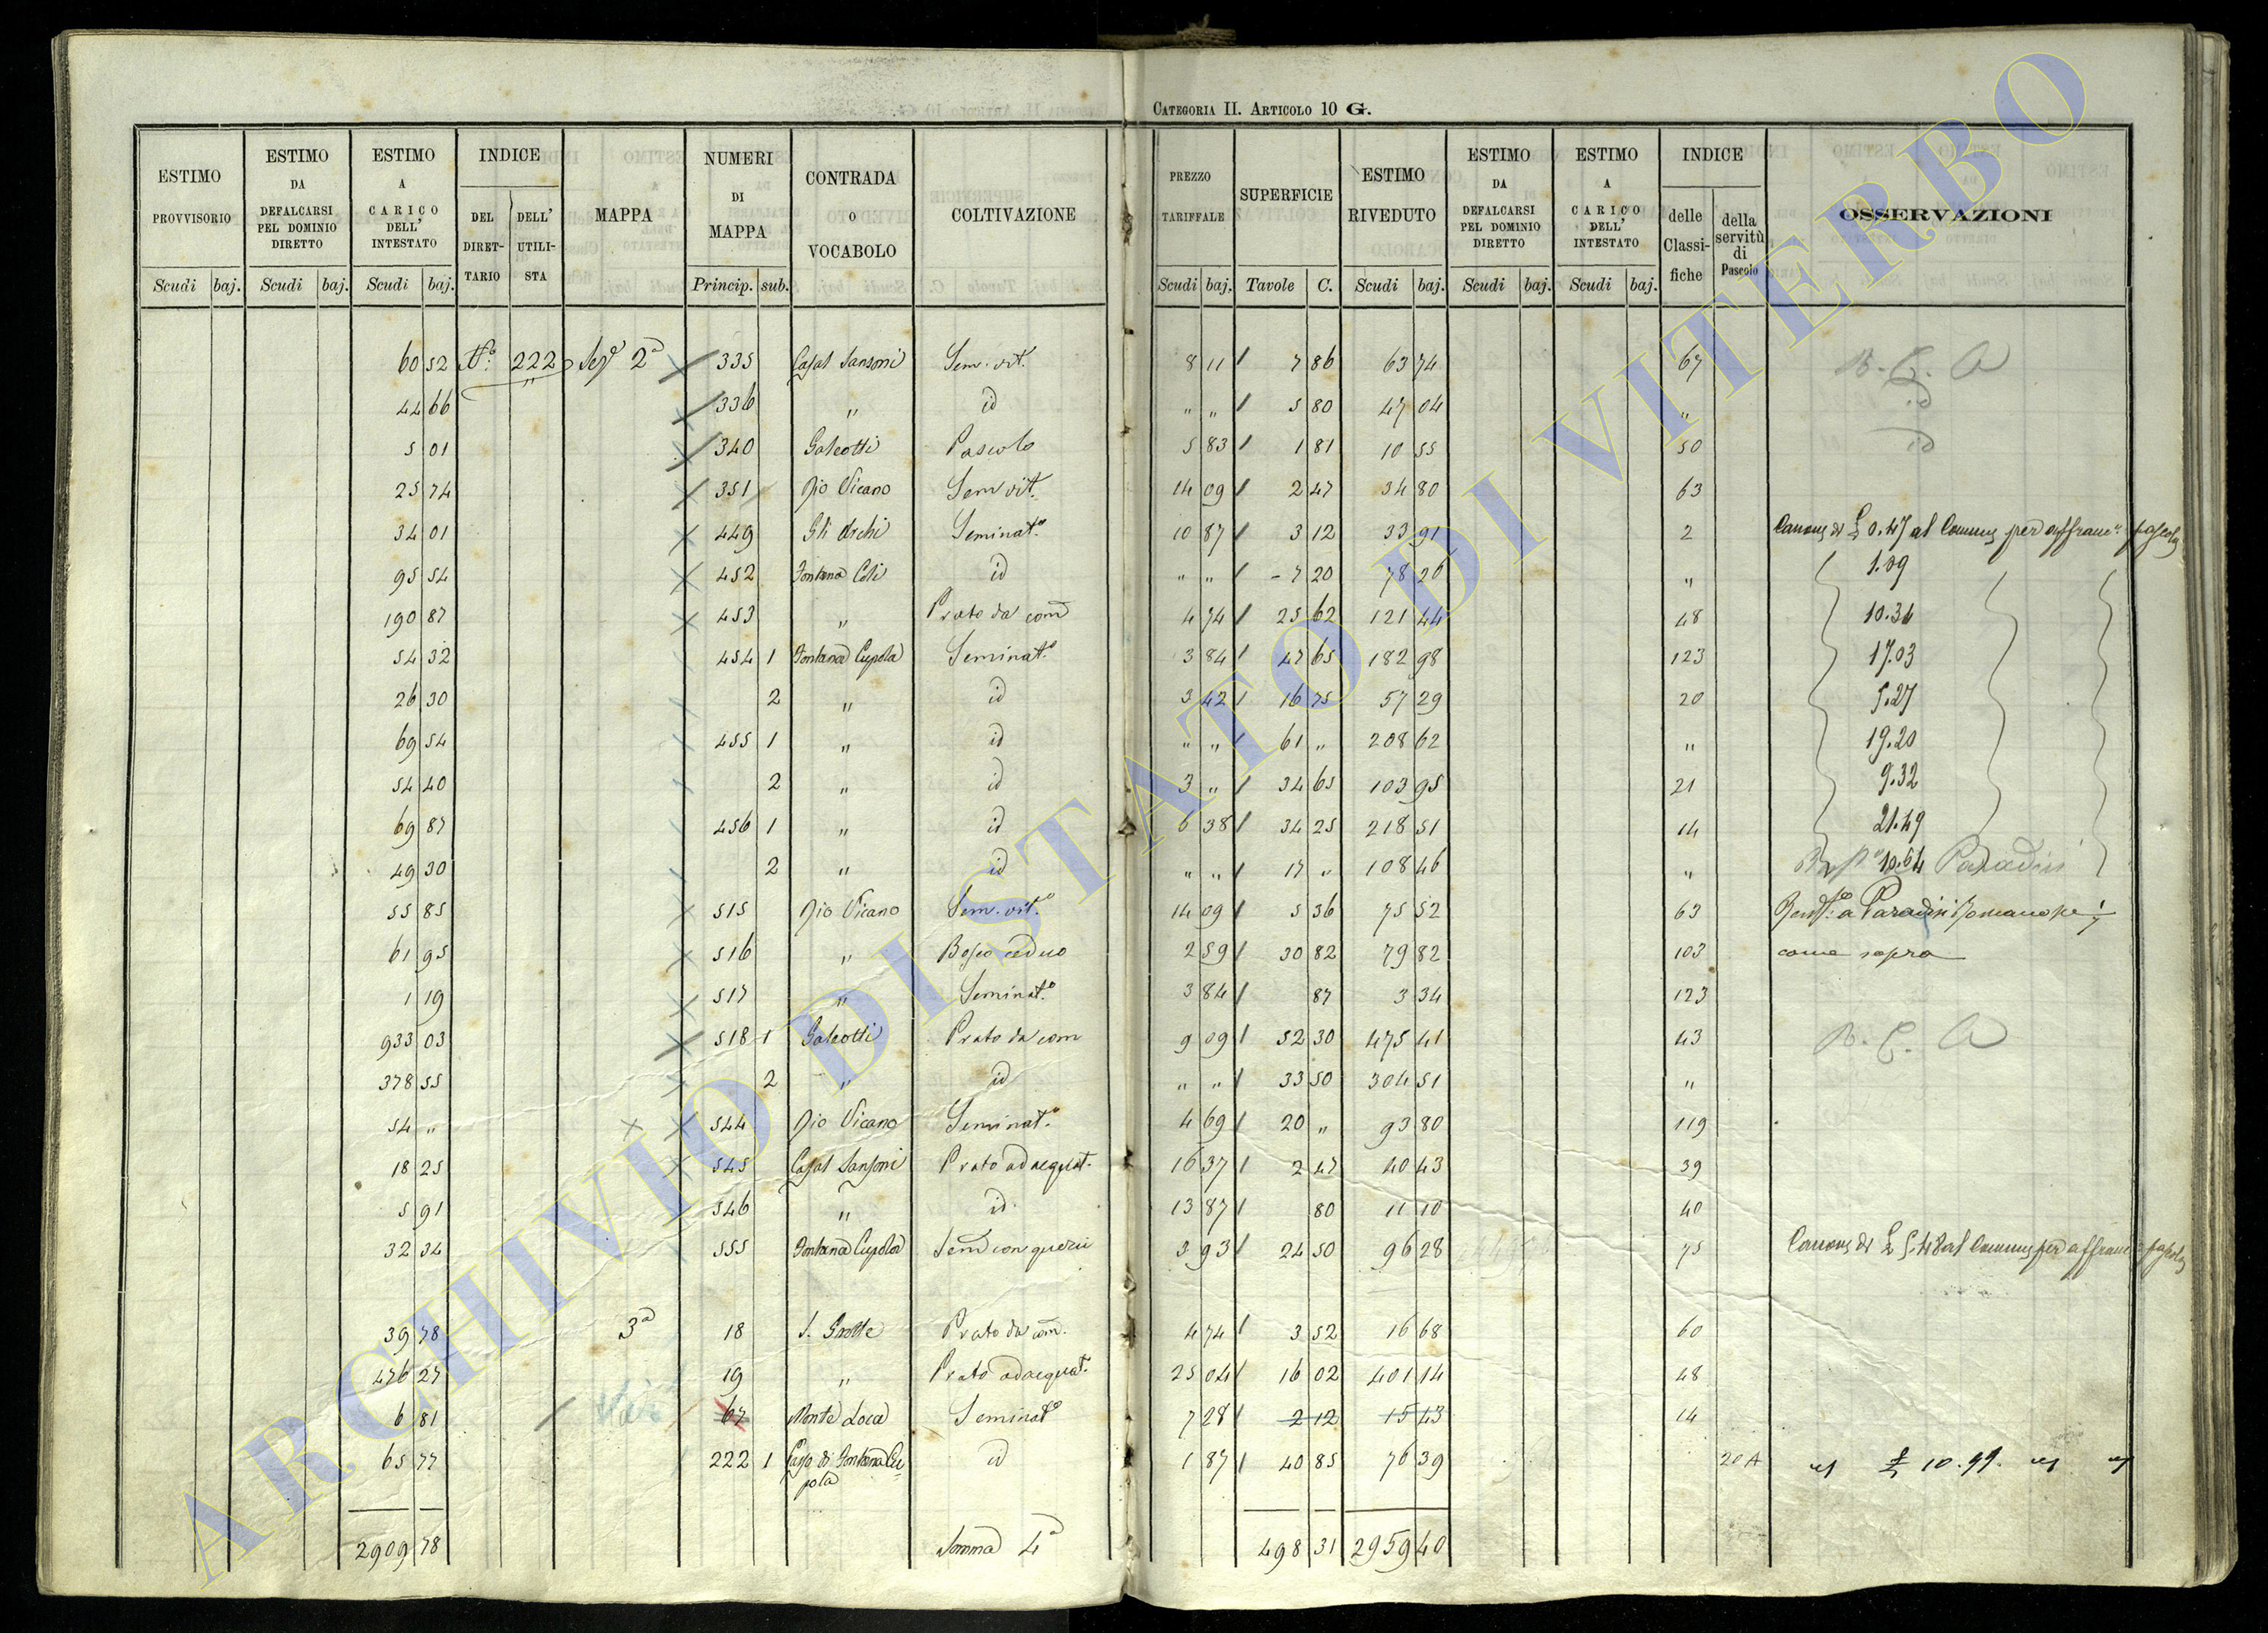 CATEGORIA II. ARTICOLO 10 G.
ESTIMO PROVVISORIO | ESTIMO DA DEFALCARSI PEL DOMINIO DIRETTO | ESTIMO A CARICO DELL' INTESTATO | INDICE | MAPPA | NUMERI DI MAPPA | CONTRADA O VOCABOLO | COLTIVAZIONE | PREZZO TARIFFALE | SUPERFICIE | ESTIMO RIVEDUTO | ESTIMO DA DEFALCARSI PEL DOMINIO DIRETTO | ESTIMO A CARICO DELL' INTESTATO | INDICE | OSSERVAZIONI
DEL DIRETTARIO | DELL' UTILISTA | delle Classifiche | della servitù di Pascolo
Scudi | baj. | Scudi | baj. | Scudi | baj. | Princip. | sub. | Scudi | baj. | Tavole | C. | Scudi | baj. | Scudi | baj. | Scudi | baj.
60 52 | N.° 222 | Sez.e 2a | 335 | Casal Sansoni | Sem. vit. | 8 11 | 7 86 | 63 74 | 67
44 66 | 336 | " | id | " " | 5 80 | 47 04 | " | id
5 01 | 340 | Galeotti | Pascolo | 5 83 | 1 81 | 10 55 | 50 | id
25 74 | 351 | Rio Vicano | Sem vit. | 14 09 | 2 47 | 34 80 | 63
34 01 | 449 | Gli Archi | Seminat.o | 10 87 | 3 12 | 33 91 | 2 | Canone di £ 0.47 al Comune per affranc.e pascolo
95 54 | 452 | Fontana Coli | id | " " | 7 20 | 78 26 | " | 1.09
190 87 | 453 | " | Prato da com | 4 74 | 25 62 | 121 44 | 48 | 10.34
54 32 | 454 1 | Fontana Cupola | Seminat.o | 3 84 | 47 65 | 182 98 | 123 | 17.03
26 30 | 2 | " | id | 3 42 | 16 75 | 57 29 | 20 | 5.27
69 54 | 455 1 | " | id | " " | 61 " | 208 62 | " | 19.20
54 40 | 2 | " | id | 3 " | 34 65 | 103 95 | 21 | 9.32
69 87 | 456 1 | " | id | 6 38 | 34 25 | 218 51 | 14 | 21.49
49 30 | 2 | " | id | " " | 17 " | 108 46 | " | 10.64 Paradisi
55 85 | 515 | Rio Vicano | Sem. vit.o | 14 09 | 5 36 | 75 52 | 63 | a Paradisi
61 95 | 516 | " | Bosco ceduo | 2 59 | 30 82 | 79 82 | 103 | come sopra
1 19 | 517 | " | Seminat.o | 3 84 | 87 | 3 34 | 123
933 03 | 518 1 | Galeotti | Prato da com | 9 09 | 52 30 | 475 41 | 43
378 55 | 2 | " | id | " " | 33 50 | 304 51 | "
54 " | 544 | Rio Vicano | Seminat.o | 4 69 | 20 " | 93 80 | 119
18 25 | 545 | Casal Sansoni | Prato adacquat. | 16 37 | 2 47 | 40 43 | 39
5 91 | 546 | " | id | 13 87 | 80 | 11 10 | 40
32 34 | 555 | Fontana Cupola | Sem con querci | 3 93 | 24 50 | 96 28 | 75 | Canone di £ 5.48 al Comune per affranc pascolo
39 78 | 3a | 18 | S. Grotte | Prato da com. | 4 74 | 3 52 | 16 68 | 60
476 27 | 19 | " | Prato adacquat. | 25 04 | 16 02 | 401 14 | 48
6 81 | 67 | Monte Loca | Seminat.o | 7 28 | 2 12 | 15 43 | 14
65 77 | 222 1 | Casa di Fontana Cupola | id | 1 87 | 40 85 | 76 39 | 20 A | £ 10.99
2909 78 | Somma 4a | 498 31 | 2959 40
ARCHIVIO DI STATO DI VITERBO